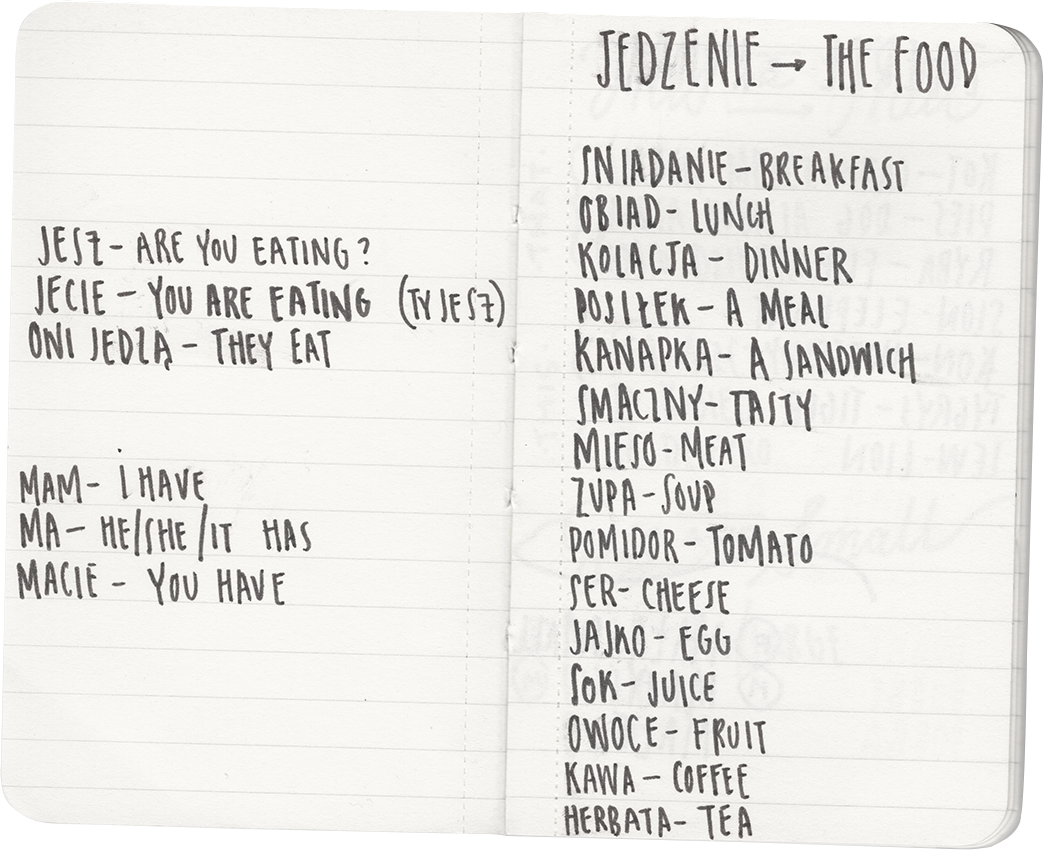 JESZ - ARE YOU EATING?
JECIE - YOU ARE EATING (TY JESZ)
ONI JEDZĄ - THEY EAT
MAM - I HAVE
MA - HE/SHE/IT HAS
MACIE - YOU HAVE
JEDZENIE → THE FOOD
SNIADANIE - BREAKFAST
OBIAD - LUNCH
KOLACJA - DINNER
POSIŁEK - A MEAL
KANAPKA - A SANDWICH
SMACZNY - TASTY
MIESO - MEAT
ZUPA - SOUP
POMIDOR - TOMATO
SER - CHEESE
JAJKO - EGG
SOK - JUICE
OWOCE - FRUIT
KAWA - COFFEE
HERBATA - TEA